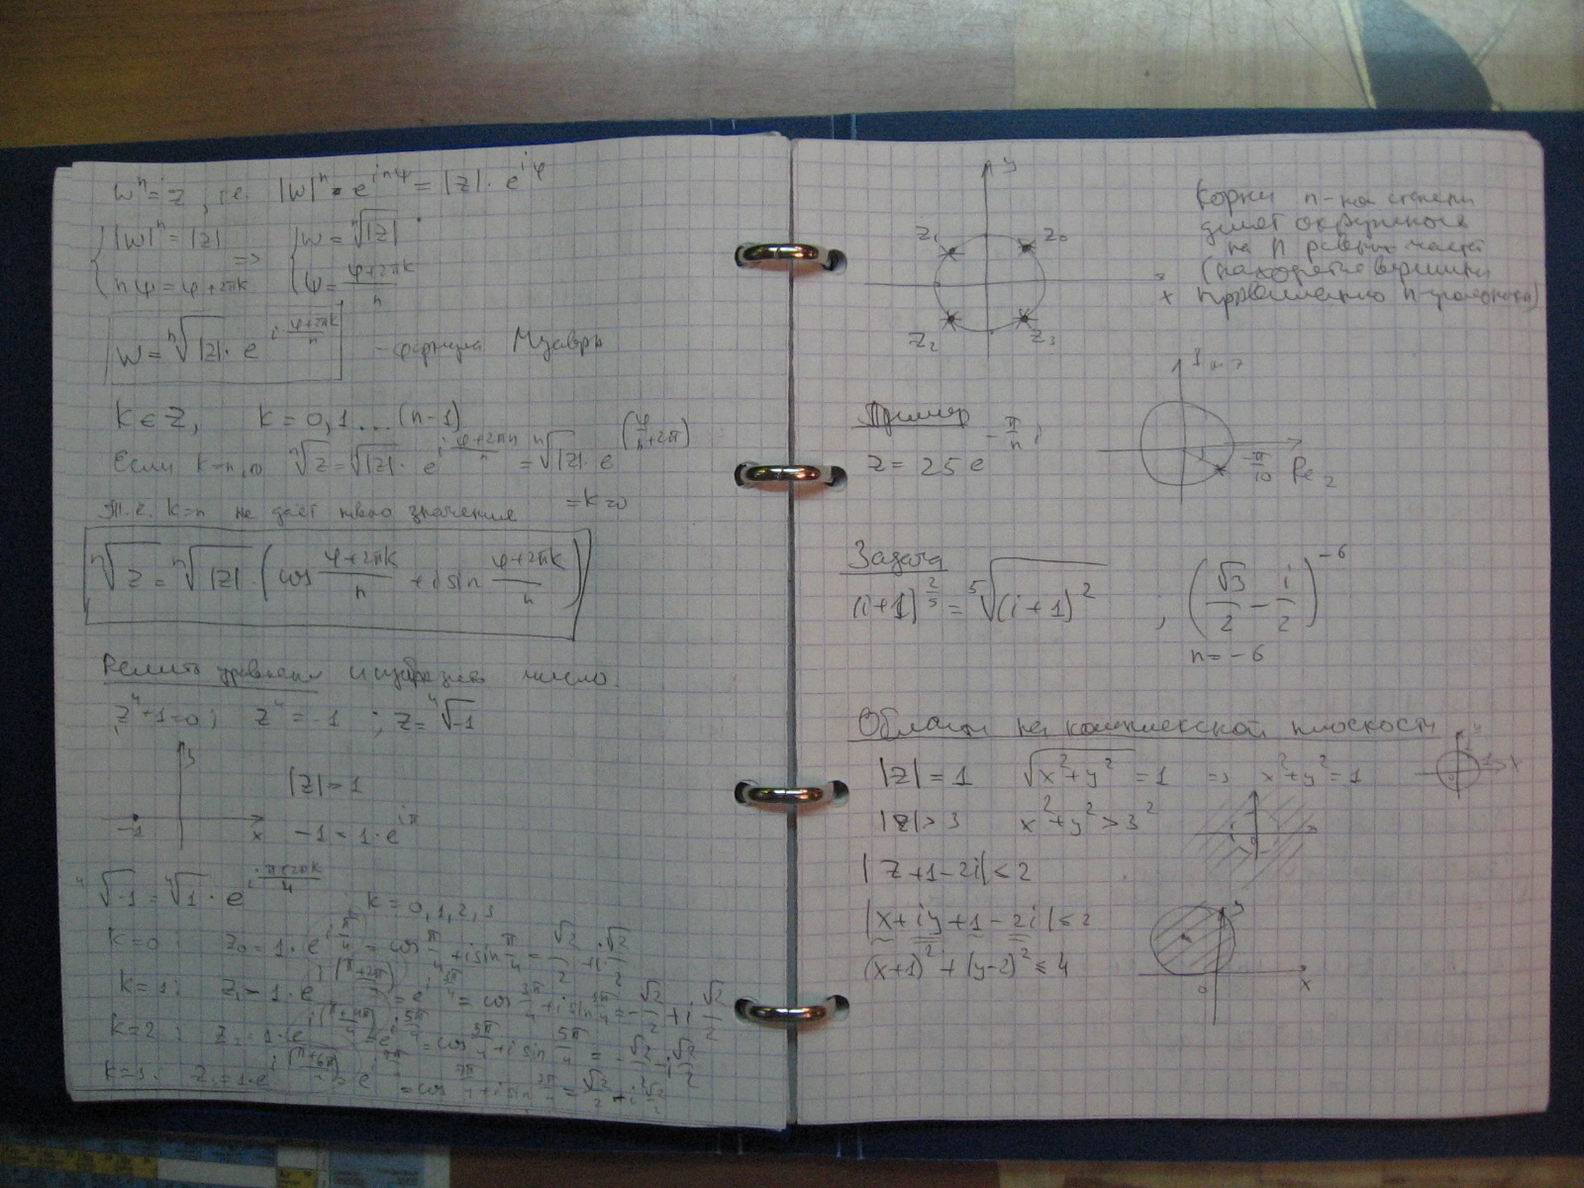 wⁿ = z, т.е. |w|ⁿ · e^{inψ} = |z| · e^{iφ}
{ |w|ⁿ = |z| => { w = ⁿ√|z|
nψ = φ+2πk ψ = (φ+2πk)/n
w = ⁿ√|z| · e^{i (φ+2πk)/n} - формула Муавра
k ∈ Z, k = 0, 1 ... (n-1)
Если k=n, то ⁿ√z = ⁿ√|z| · e^{i (φ+2πn)/n} = ⁿ√|z| · e^{(φ/n+2π)}
= k=0
Т.е. k=n не даёт нового значения
ⁿ√z = ⁿ√|z| · (cos (φ+2πk)/n + i sin (φ+2πk)/n)
Решить уравнение и изобразить число.
z⁴+1=0; z⁴ = -1 ; z = ⁴√-1
y
|z| = 1
-1 x -1 = 1·e^{iπ}
⁴√-1 = ⁴√1 · e^{i (π+2πk)/4} , k = 0, 1, 2, 3
k=0: z₀ = 1·e^{i π/4} = cos π/4 + i sin π/4 = √2/2 + i √2/2
k=1: z₁ = 1·e^{i (π+2π)/4} = e^{i 3π/4} = cos 3π/4 + i sin 3π/4 = -√2/2 + i √2/2
k=2: z₂ = 1·e^{i (π+4π)/4} = e^{i 5π/4} = cos 5π/4 + i sin 5π/4 = -√2/2 - i √2/2
k=3: z₃ = 1·e^{i (π+6π)/4} = e^{i 7π/4} = cos 7π/4 + i sin 7π/4 = √2/2
y
z₁ z₀
z₂ z₃
Корни n-ной степени
делят окружность
на n равных частей
(находятся в вершинах
правильного n-угольника)
Пример
z = 25 e^{-π/n i}
Im z
-π/10 Re z
Задача
(i+1)^{2/5} = ⁵√(i+1)² ; (√3/2 - i/2)^{-6}
n = -6
Области на комплексной плоскости
|z| = 1 √x²+y² = 1 => x²+y² = 1
y 1 x 0
|z| > 3 x²+y² > 3²
|z+1-2i| ≤ 2
|x+iy+1-2i| ≤ 2
(x+1)² + (y-2)² ≤ 4
y
0 x